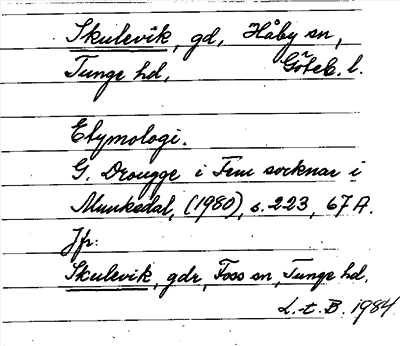 Skulevik, gd, Håby sn,
Tunge hd, Göteb. l.
Etymologi.
G. Drougge i Fem socknar i
Munkedal, (1980), s. 223, 67 A.
Jfr:
Skulevik, gdr, Foss sn, Tunge hd.
L.-t. B. 1984